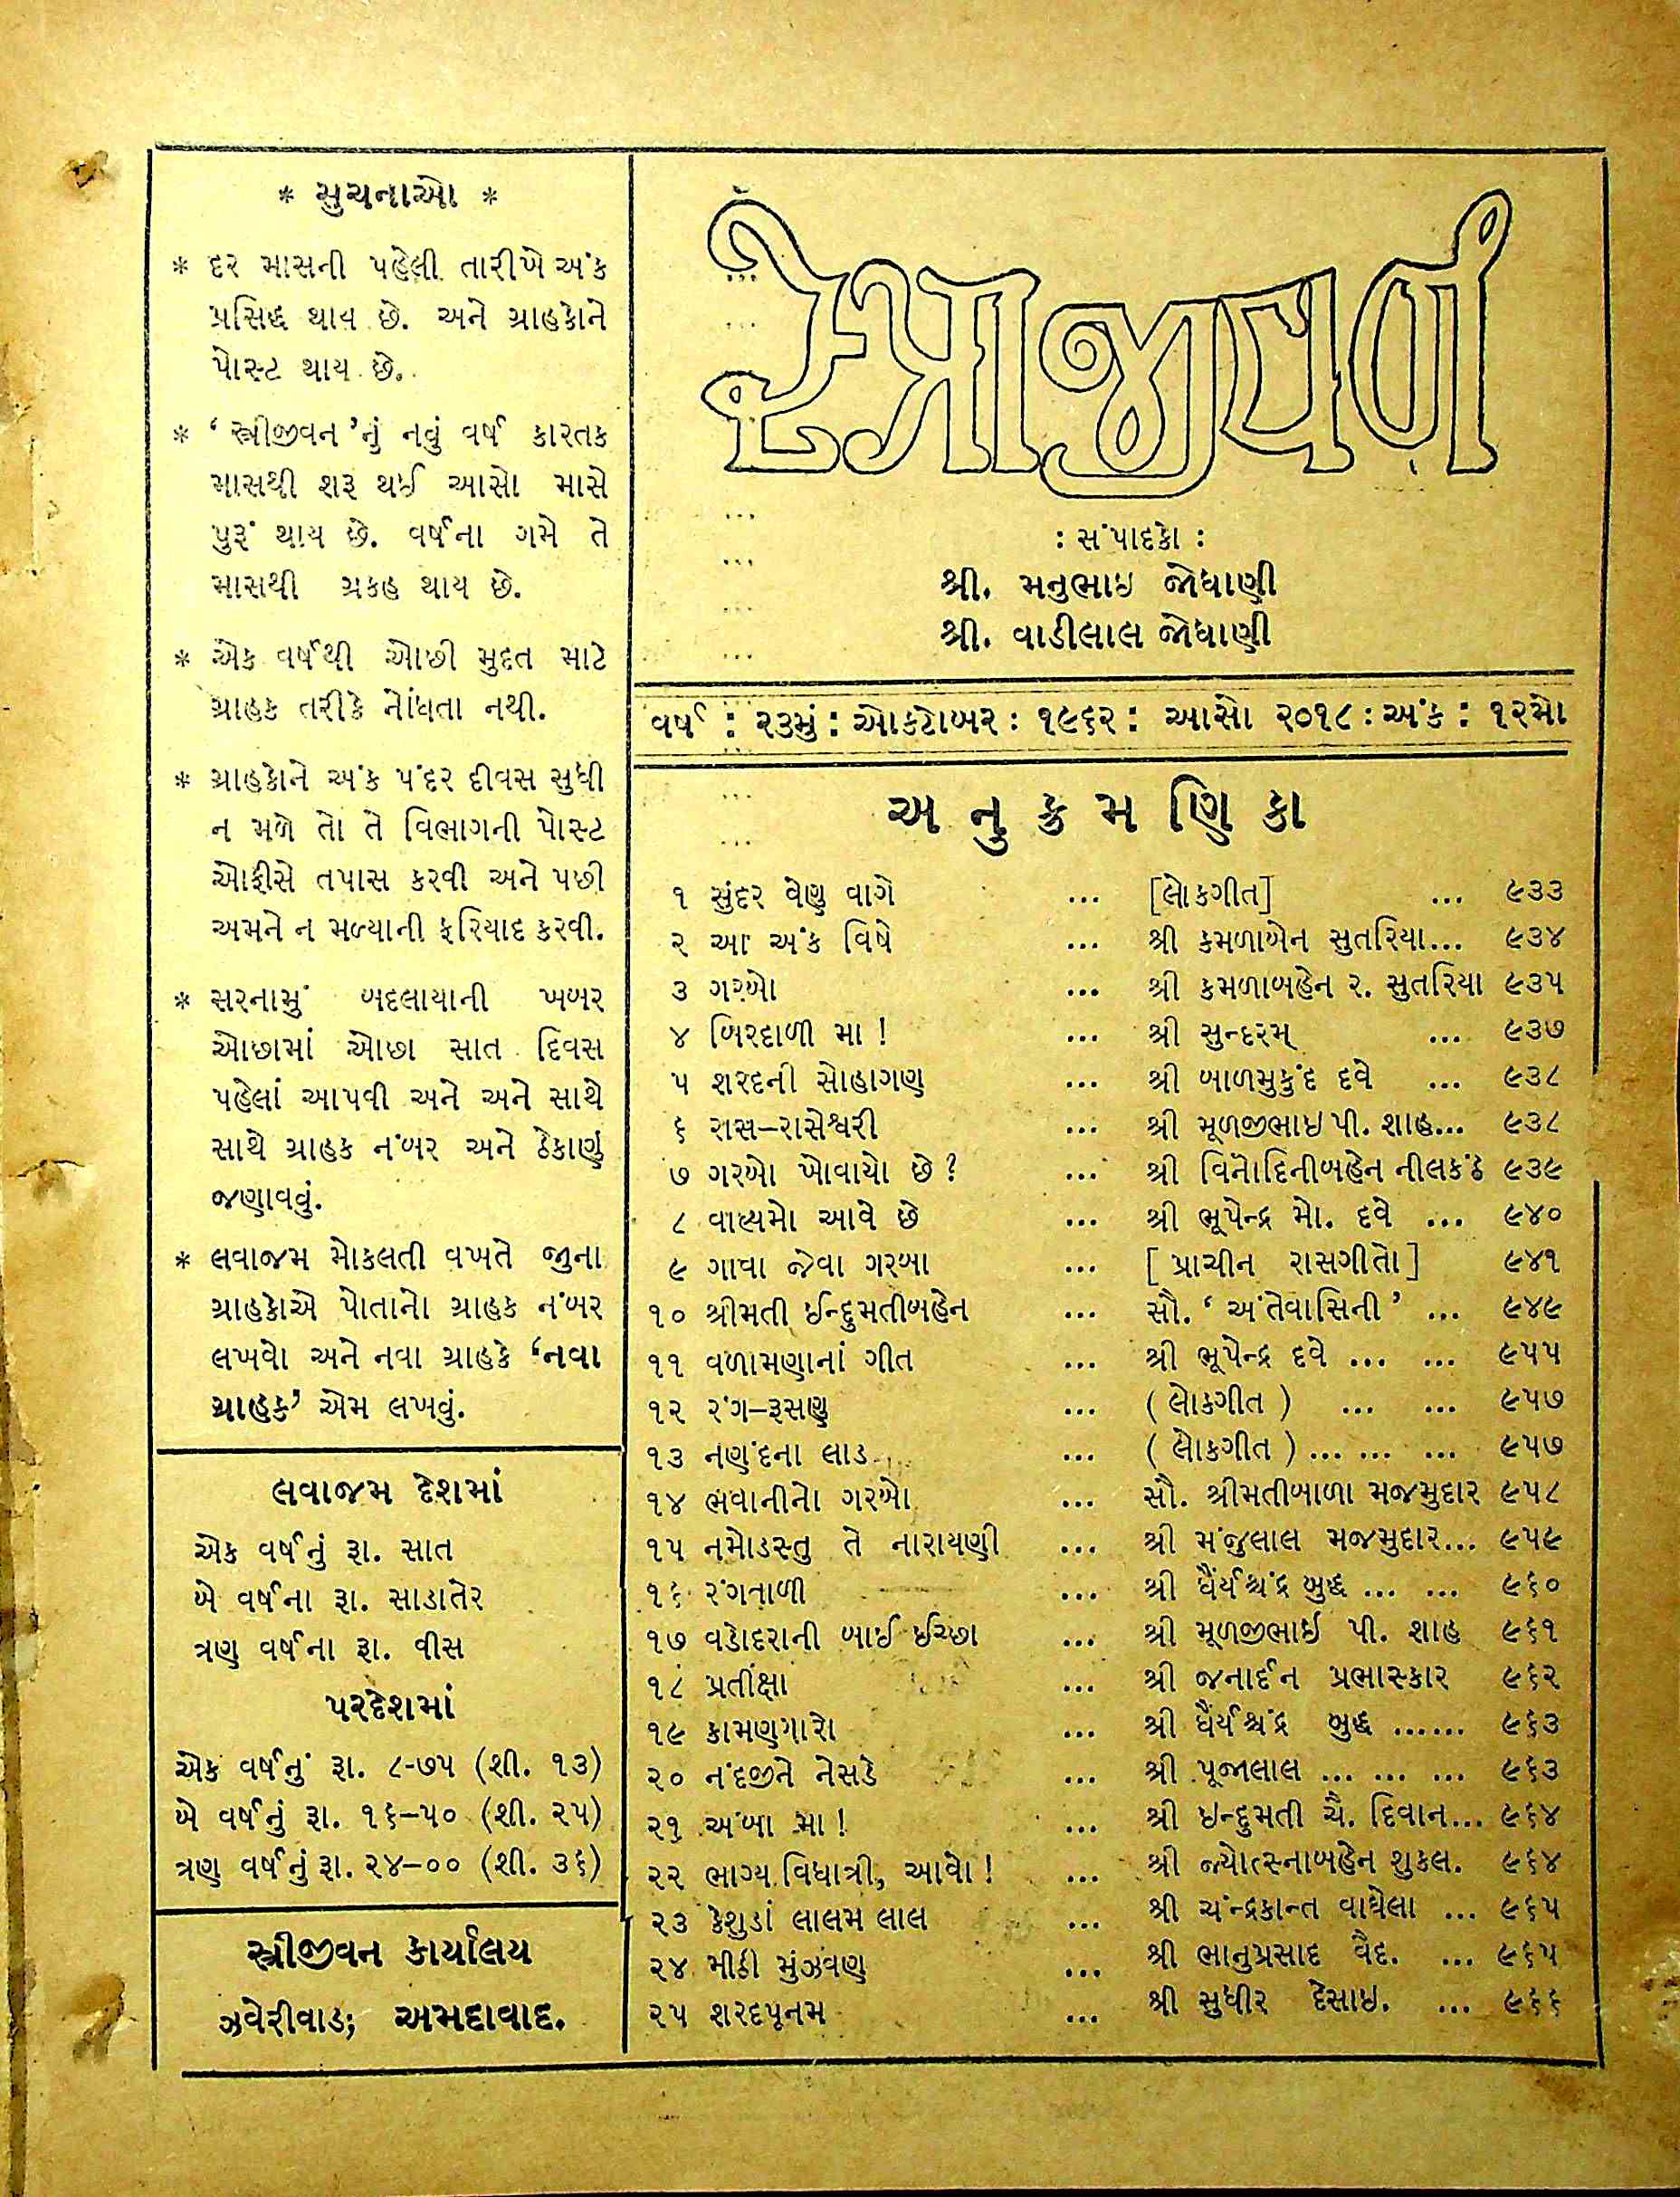 * સુચનાઓ *
* દર માસની પહેલી તારીખે અંક
પ્રસિદ્ધ થાય છે. અને ગ્રાહકોને
પોસ્ટ થાય છે.
* ‘ સ્ત્રીજીવન ’નું નવું વર્ષ કારતક
માસથી શરૂ થઈ આસો માસે
પુરૂં થાય છે. વર્ષના ગમે તે
માસથી ગ્રકહ થાય છે.
* એક વર્ષથી ઓછી મુદત માટે
ગ્રાહક તરીકે નોંધતા નથી.
* ગ્રાહકોને અંક પંદર દીવસ સુધી
ન મળે તો તે વિભાગની પોસ્ટ
ઓફીસે તપાસ કરવી અને પછી
અમને ન મળ્યાની ફરિયાદ કરવી.
* સરનામું બદલાયાની ખબર
ઓછામાં ઓછા સાત દિવસ
પહેલાં આપવી અને અને સાથે
સાથે ગ્રાહક નંબર અને ઠેકાણું
જણાવવું.
* લવાજમ મોકલતી વખતે જુના
ગ્રાહકોએ પોતાનો ગ્રાહક નંબર
લખવો અને નવા ગ્રાહકે ‘નવા
ગ્રાહક’ એમ લખવું.
લવાજમ દેશમાં
એક વર્ષનું રૂા. સાત
બે વર્ષના રૂા. સાડાતેર
ત્રણ વર્ષના રૂા. વીસ
પરદેશમાં
એક વર્ષનું રૂા. ૮-૭૫ (શી. ૧૩)
બે વર્ષનું રૂા. ૧૬–૫૦ (શી. ૨૫)
ત્રણ વર્ષનું રૂા. ૨૪–૦૦ (શી. ૩૬)
સ્ત્રીજીવન કાર્યાલય
ઝવેરીવાડ; અમદાવાદ.
સ્ત્રીજીવન
: સંપાદકો :
શ્રી. મનુભાઇ જોધાણી
શ્રી. વાડીલાલ જોધાણી
વર્ષ : ૨૩મું : ઓક્ટોબર : ૧૯૬૨ : આસો ૨૦૧૮ : અંક : ૧૨મો
અનુક્રમણિકા
૧ સુંદર વેણુ વાગે ... [લોકગીત] ... ૯૩૩
૨ આ અંક વિષે ... શ્રી કમળાબેન સુતરિયા... ૯૩૪
૩ ગરબો ... શ્રી કમળાબહેન ર. સુતરિયા ૯૩૫
૪ બિરદાળી મા ! ... શ્રી સુન્દરમ્ ... ૯૩૭
૫ શરદની સોહાગણ ... શ્રી બાળમુકુંદ દવે ... ૯૩૮
૬ રાસ–રાસેશ્વરી ... શ્રી મૂળજીભાઇ પી. શાહ... ૯૩૮
૭ ગરબો ખોવાયો છે ? ... શ્રી વિનોદિનીબહેન નીલકંઠ ૯૩૯
૮ વાલ્યમો આવે છે ... શ્રી ભૂપેન્દ્ર મો. દવે ... ૯૪૦
૯ ગાવા જેવા ગરબા ... [ પ્રાચીન રાસગીતો ] ૯૪૧
૧૦ શ્રીમતી ઈન્દુમતીબહેન ... સૌ. ‘ અંતેવાસિની ’ ... ૯૪૯
૧૧ વળામણાનાં ગીત ... શ્રી ભૂપેન્દ્ર દવે ... ... ૯૫૫
૧૨ રંગ–રૂસણુ ... ( લોકગીત ) ... ... ૯૫૭
૧૩ નણંદના લાડ ... ( લોકગીત ) ... ... ... ૯૫૭
૧૪ ભવાનીનો ગરબો ... સૌ. શ્રીમતીબાળા મજમુદાર ૯૫૮
૧૫ નમોડસ્તુ તે નારાયણી ... શ્રી મંજુલાલ મજમુદાર... ૯૫૯
૧૬ રંગતાળી ... શ્રી ધૈર્યશ્ચંદ્ર બુદ્ધ ... ... ૯૬૦
૧૭ વડોદરાની બાઈ ઈચ્છા ... શ્રી મૂળજીભાઈ પી. શાહ ૯૬૧
૧૮ પ્રતીક્ષા ... શ્રી જનાર્દન પ્રભાસ્કાર ૯૬૨
૧૯ કામણગારો ... શ્રી ધૈર્યશ્ચંદ્ર બુદ્ધ ...... ૯૬૩
૨૦ નંદજીને નેસડે ... શ્રી પૂજાલાલ ... ... ... ૯૬૩
૨૧ અંબા મા ! ... શ્રી ઇન્દુમતી ચૈ. દિવાન... ૯૬૪
૨૨ ભાગ્ય વિધાત્રી, આવો ! ... શ્રી જ્યોત્સ્નાબહેન શુકલ. ૯૬૪
૨૩ કેશુડાં લાલમ લાલ ... શ્રી ચંન્દ્રકાન્ત વાઘેલા ... ૯૬૫
૨૪ મીઠી મુંઝવણ ... શ્રી ભાનુપ્રસાદ વૈદ. ... ૯૬૫
૨૫ શરદપૂનમ ... શ્રી સુધીર દેસાઇ. ... ૯૬૬